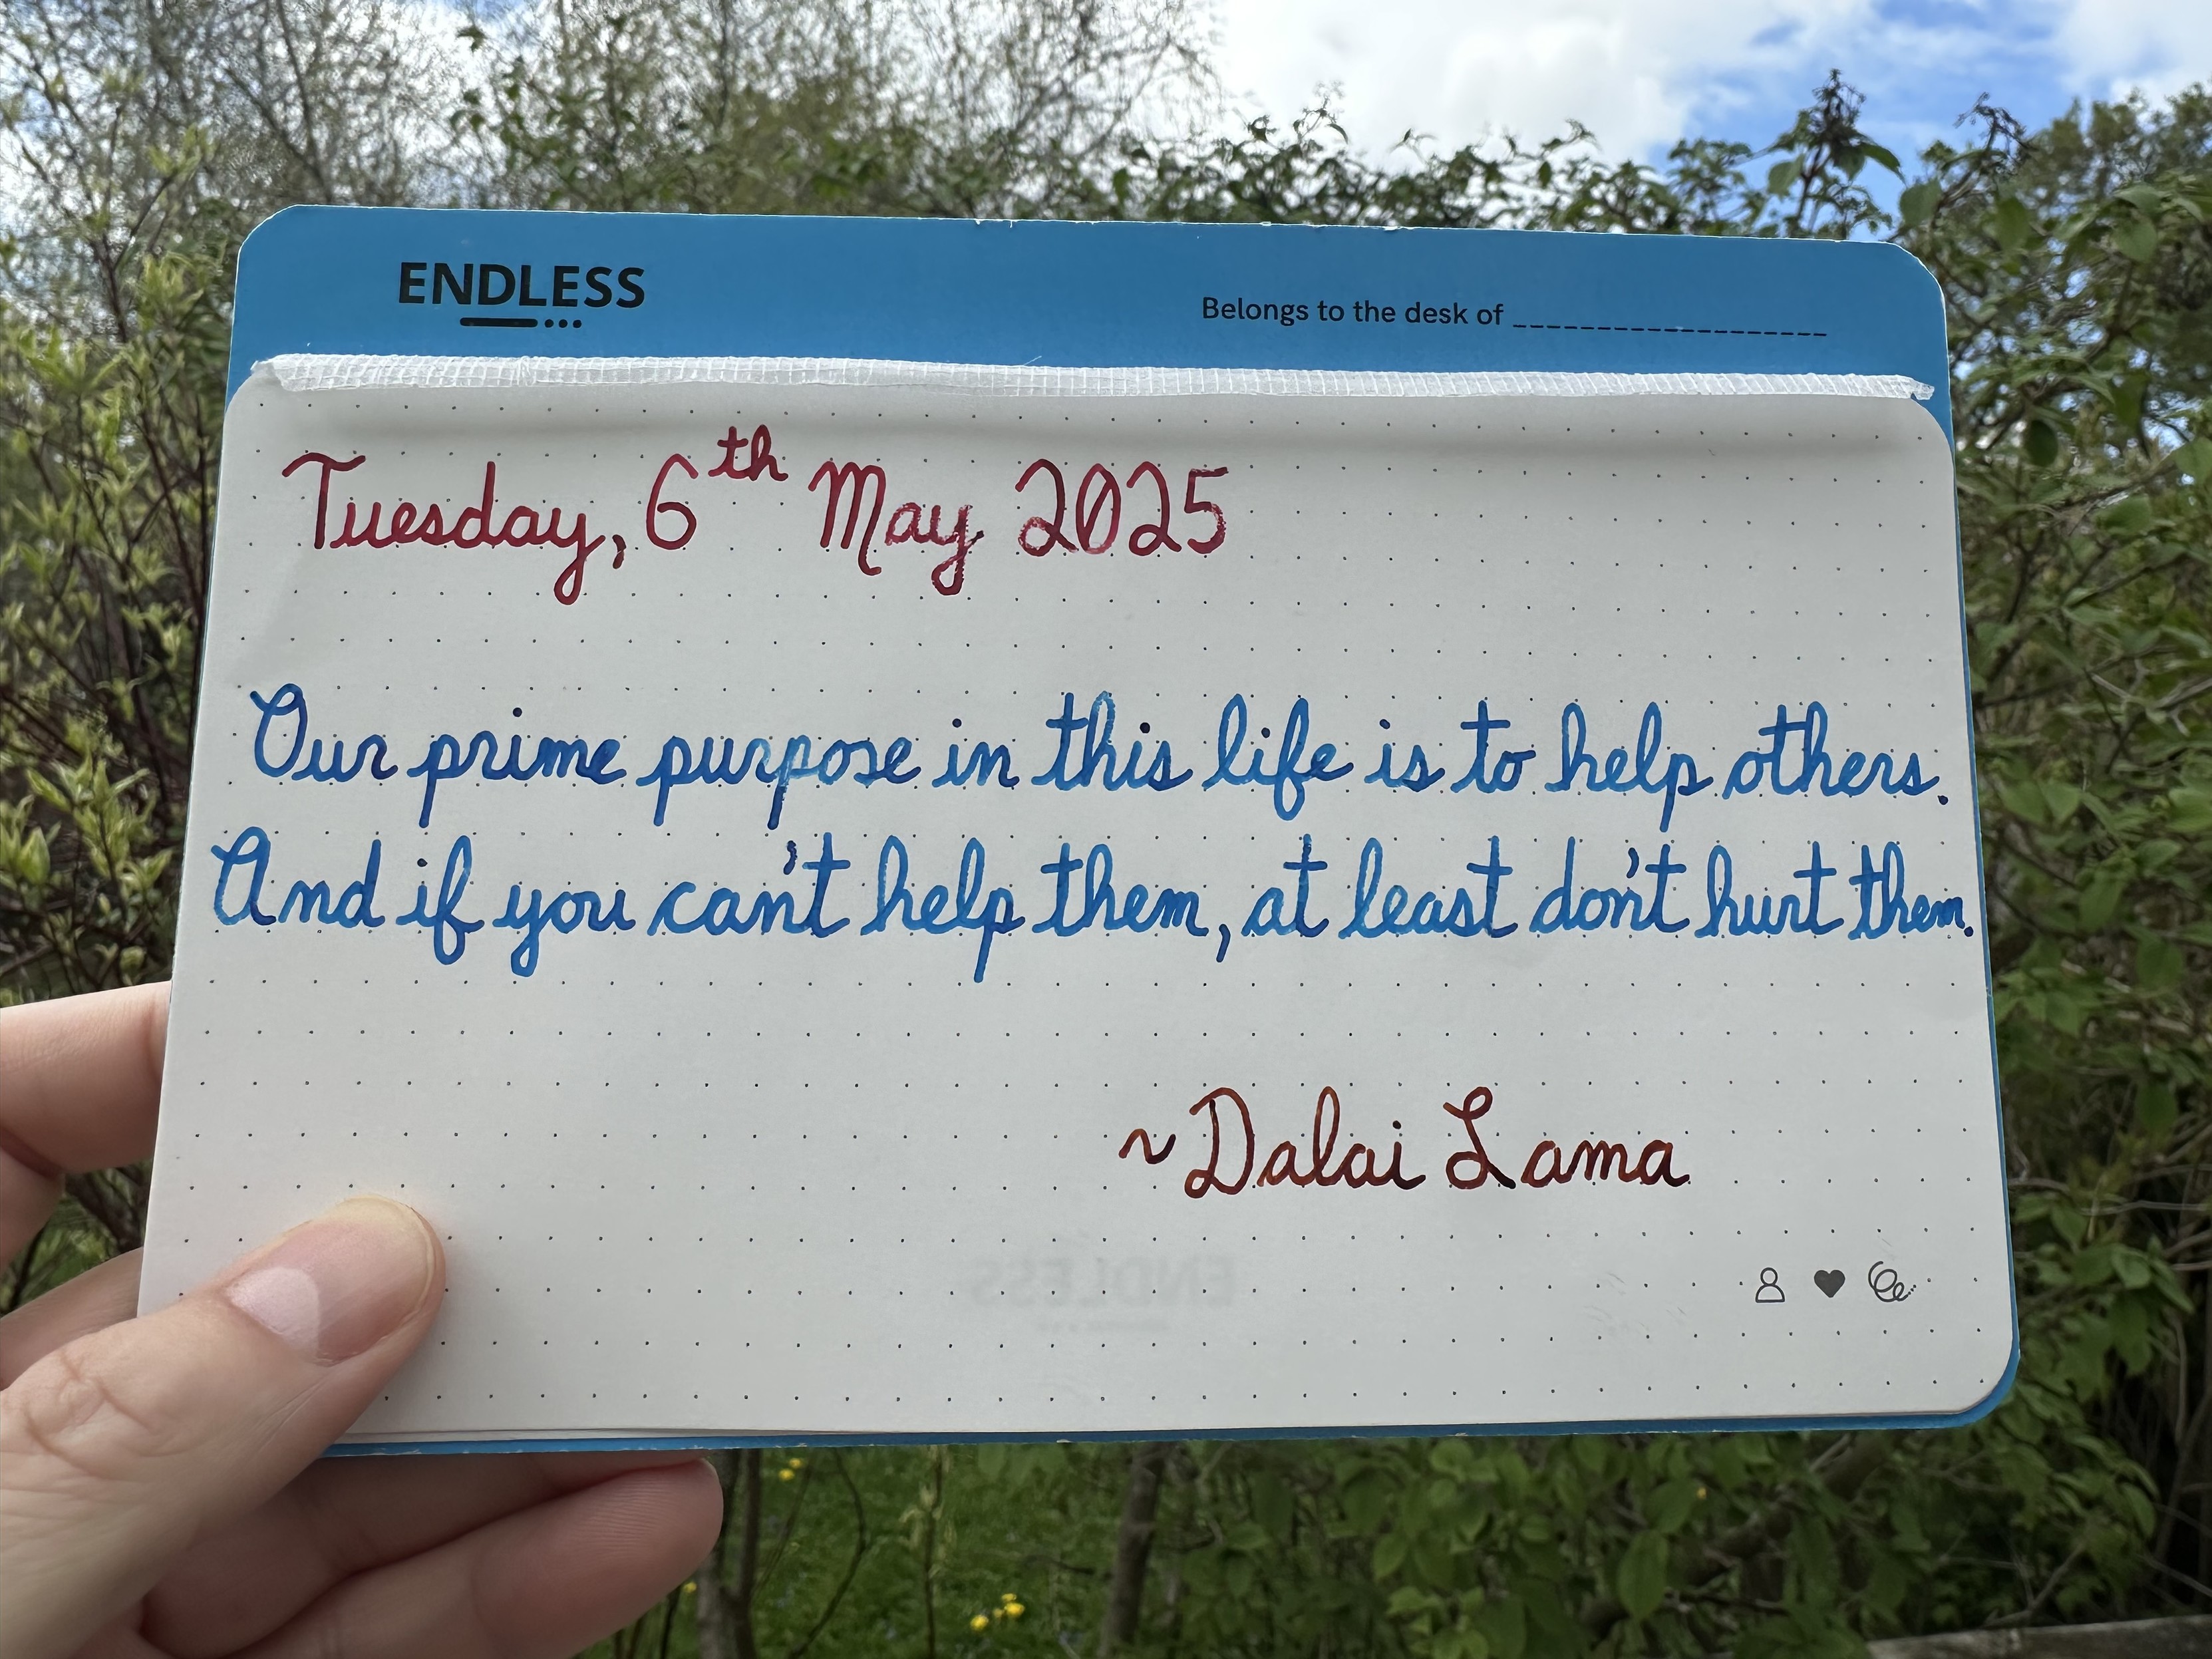 ENDLESS
Belongs to the desk of
Tuesday, 6th May 2025
Our prime purpose in this life is to help others.
And if you can't help them, at least don't hurt them.
~Dalai Lama
ENDLESS